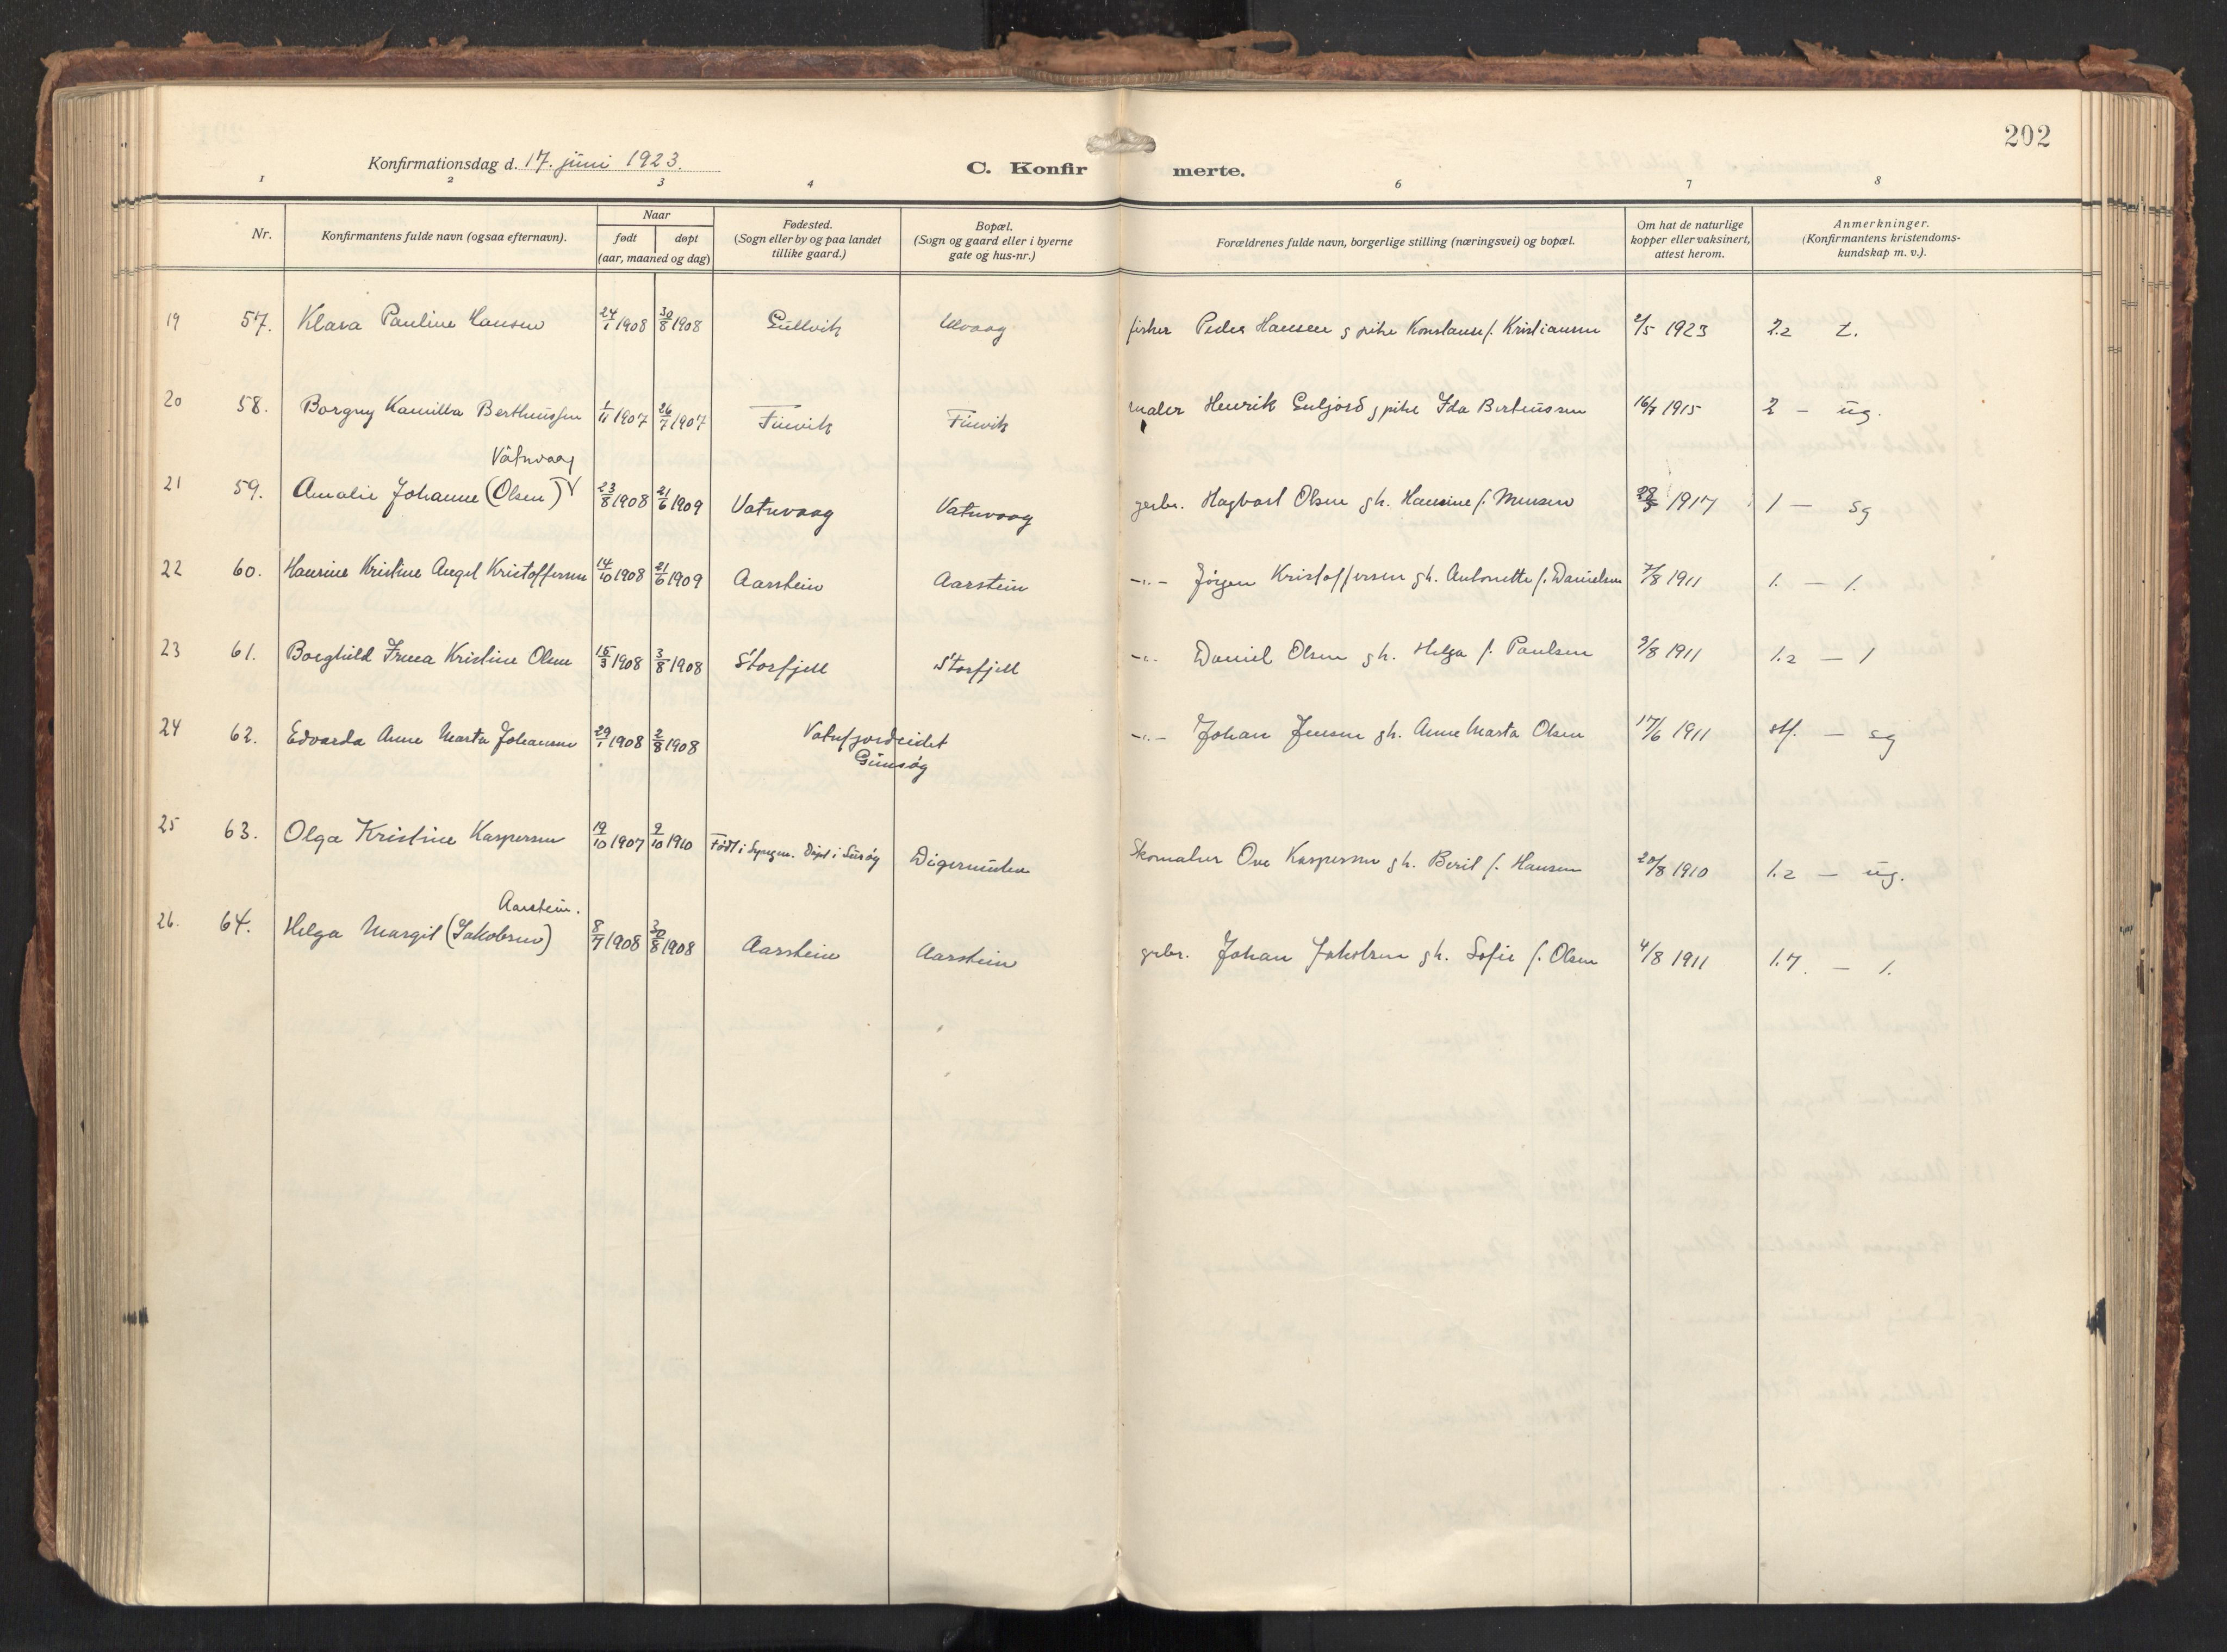 202
Konfirmationsdag d. 17. juni 1923.
C. Konfirmerte.
1 2 3 4 6 7 8
Nr. Konfirmantens fulde navn (ogsaa efternavn). Naar født døpt (aar, maaned og dag) Fødested. (Sogn eller by og paa landet tillike gaard.) Bopæl. (Sogn og gaard eller i byerne gate og hus-nr.) Forældrenes fulde navn, borgerlige stilling (næringsvei) og bopæl. Om hat de naturlige kopper eller vaksinert, attest herom. Anmerkninger. (Konfirmantens kristendoms-kundskap m. v.).
19 57. Klara Pauline Hansen 24/1 1908 30/8 1908 Gullvik Ulvaag fisker Peder Hansen g pike Konstanse f. Kristiansen 2/5 1923 2.2 t.
20 58. Borgny Kamilla Berthinssen 1/11 1907 26/7 1907 Finvik Finvik maler Henrik Guljord g pike Ida Bertinssen 16/7 1915 2 – üg.
Vatnvaag
21 59. Amalie Johanne (Olsen) 23/8 1908 21/6 1909 Vatnvaag Vatnvaag gerbr. Hagbart Olsen gh. Hansine f. Monsen 1917 1 – sg
22 60. Hansine Kristine Angel Kristoffersen 14/10 1908 21/6 1909 Aarstein Aarstein –"– Jörgen Kristoffersen gh. Antonette f. Danielsen 7/8 1911 1. – 1.
23 61. Borghild Irena Kristine Olsen 15/3 1908 3/8 1908 Storfjell Storfjell –"– Daniel Olsen gh. Helga f. Paulsen 3/8 1911 1.2 – 1
24 62. Edvarda Anne Marta Johansen 29/1 1908 2/8 1908 Vatnfjordeidet –"– Johan Jensen gh. Anne Marta Olsen 17/6 1911 – sg
25 63. Olga Kristine Kaspersen 19/10 1907 9/10 1910 Född i Døpt i Digermulen Skomaker Ove Kaspersen gh. Berit f. Hansen 20/8 1910 1.2 – üg.
Aarstein.
26. 64. Helga Margit (Jakobsen) 8/7 1908 30/8 1908 Aarstein Aarstein grbr. Johan Jakobsen gh. Sofie f. Olsen 4/8 1911 1.7 – 1.